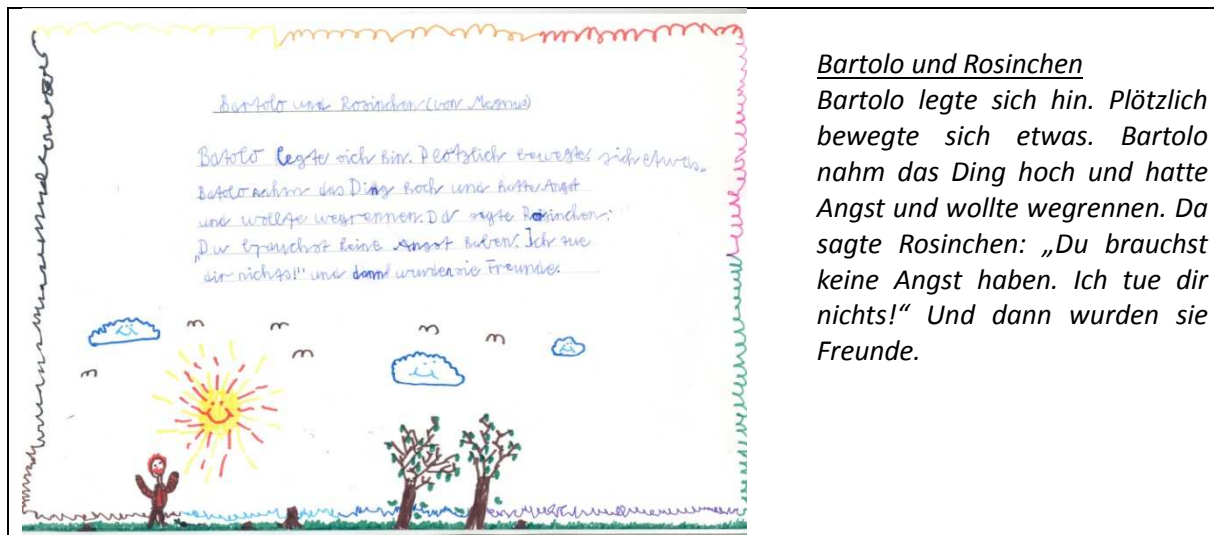 Bartolo und Rosinchen (von Magnus)
Batolo legte sich hin. Plötzlich bewegte sich etwas.
Batolo nahm das Ding hoch und hatte Angst
und wollte wegrennen. Da sagte Rosinchen:
„Du brauchst keine Angst haben. Ich tue
dir nichts!" und dann wurden sie Freunde.
Bartolo und Rosinchen
Bartolo legte sich hin. Plötzlich
bewegte sich etwas. Bartolo
nahm das Ding hoch und hatte
Angst und wollte wegrennen. Da
sagte Rosinchen: „Du brauchst
keine Angst haben. Ich tue dir
nichts!“ Und dann wurden sie
Freunde.